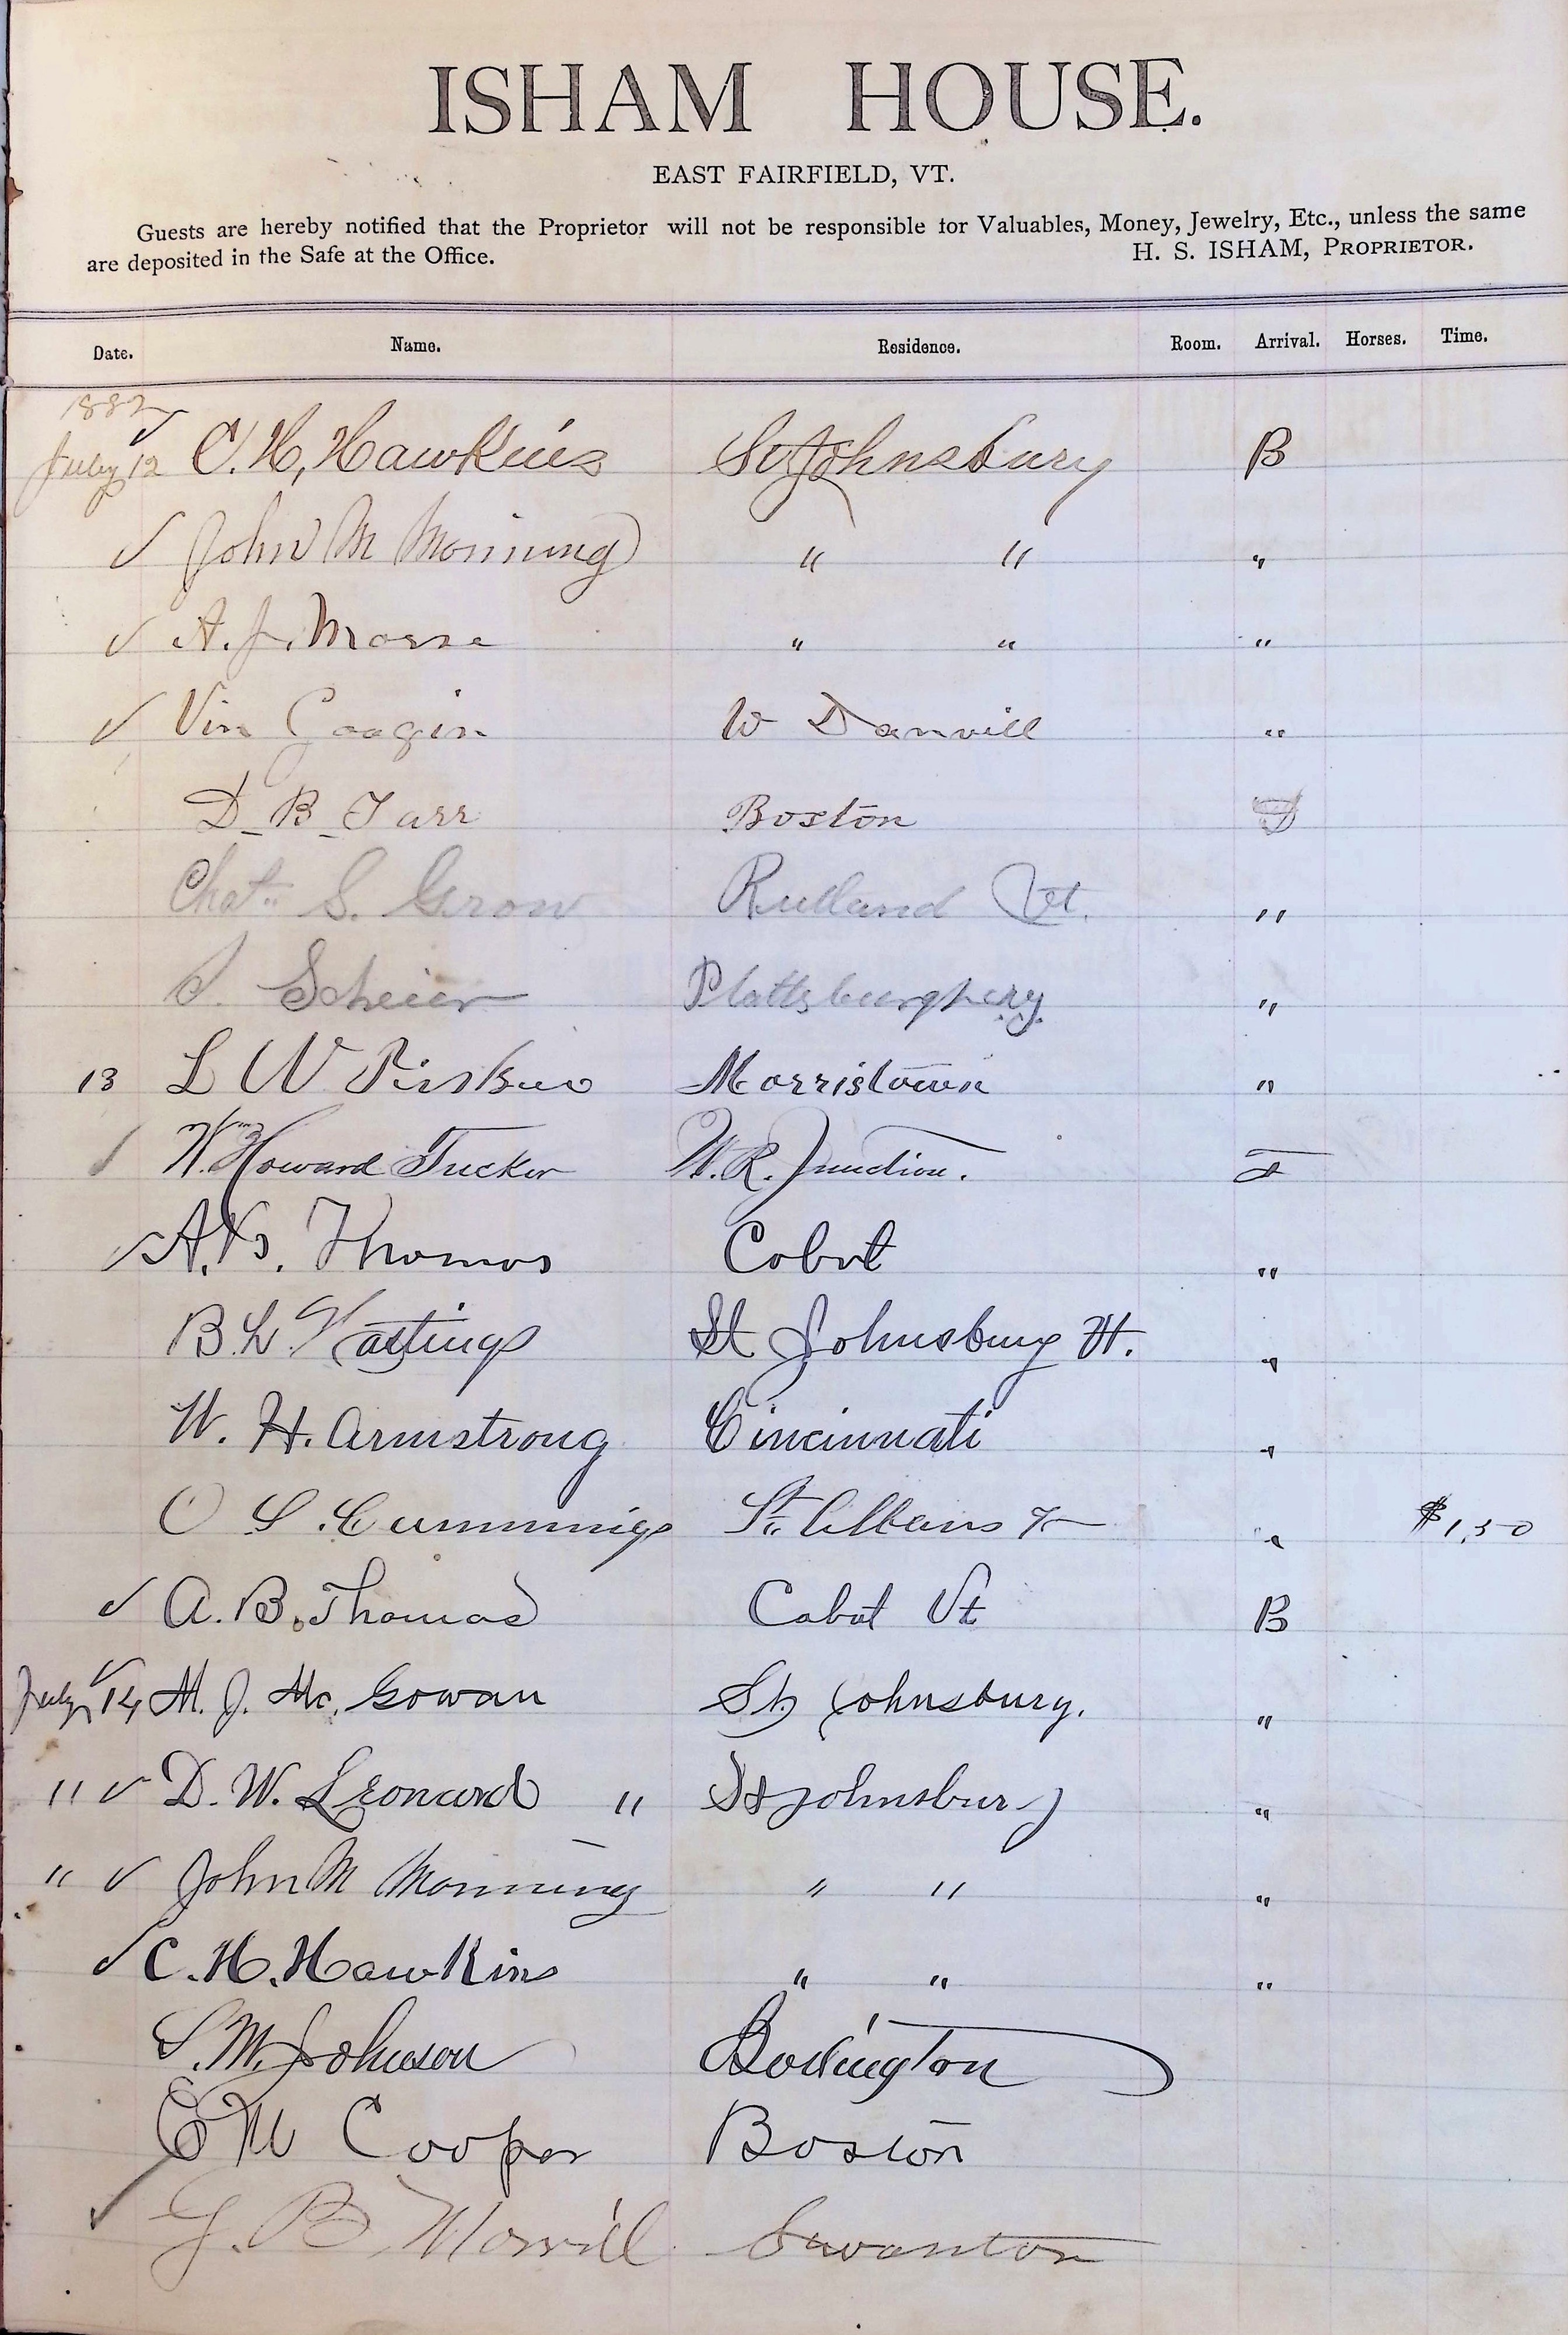 ISHAM HOUSE.
EAST FAIRFIELD, VT.
Guests are hereby notified that the Proprietor will not be responsible for Valuables, Money, Jewelry, Etc., unless the same
are deposited in the Safe at the Office. H. S. ISHAM, PROPRIETOR.
Date. Name. Residence. Room. Arrival. Horses. Time.
1882
July 12 ✓ C. H. Hawkins St Johnsbury B
✓ John M Morning " " "
✓ A. J. Morse " " "
✓ Vin Goagin W Danvill "
D. B. Tarr Boston
Chas. S. Grow Rutland Vt. "
S. Scheier Plattsburgh NY. "
13 L W Morristown "
✓ Wm Howard Tucker W. R. Junction.
✓ A. B. Thomas Cobot "
B. L. Hastings St Johnsbury Vt. "
W. H. Armstrong Cincinnati "
O S. Cummings St. Albans Vt " $1.50
✓ A. B. Thomas Cabot Vt B
July 14 ✓ M. J. Mc. Gowan St. Johnsbury. "
" ✓ D. W. Leonard " St Johnsbury "
" ✓ John M Morning " " "
✓ C. H. Hawkins " " "
S. M. Johnson Burlington
E M Cooper Boston
✓ G. B. Morrill Swanton